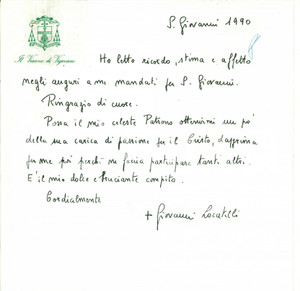 S. Giovanni 1990
Il Vescovo di Vigevano
Ho letto ricordo, stima e affetto
negli auguri a me mandati per S. Giovanni.
Ringrazio di cuore.
Possa il mio celeste Patrono ottenermi un po'
della sua carica di passione per il Cristo, dapprima
per me poi perché ne faccia partecipare tanti altri.
E' il mio dolce e bruciante compito.
Cordialmente
+ Giovanni Locatelli